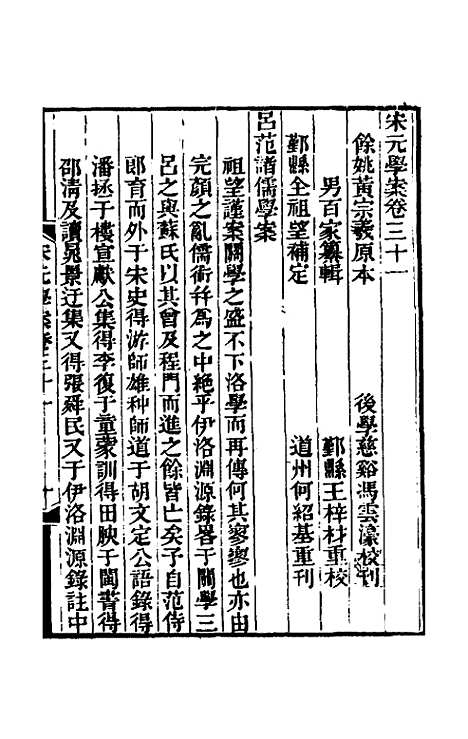 宋元學案卷三十一
餘姚黃宗羲原本　後學慈谿馮雲濠校刊
男百家纂輯　鄞縣王梓材重校
鄞縣全祖望補定　道州何紹基重刊
呂范諸儒學案
祖望謹案關學之盛不下洛學而再傳何其寥寥也亦由
完顏之亂儒術幷爲之中絶乎伊洛淵源錄畧于關學三
呂之與蘇氏以其曾及程門而進之餘皆亡矣予自范侍
郎育而外于宋史得游師雄种師道于胡文定公語錄得
潘拯于樓宣獻公集得李復于童蒙訓得田腴于閩書得
邵清及讀晁景迂集又得張舜民又于伊洛淵源錄註中
宋元學案卷三十一